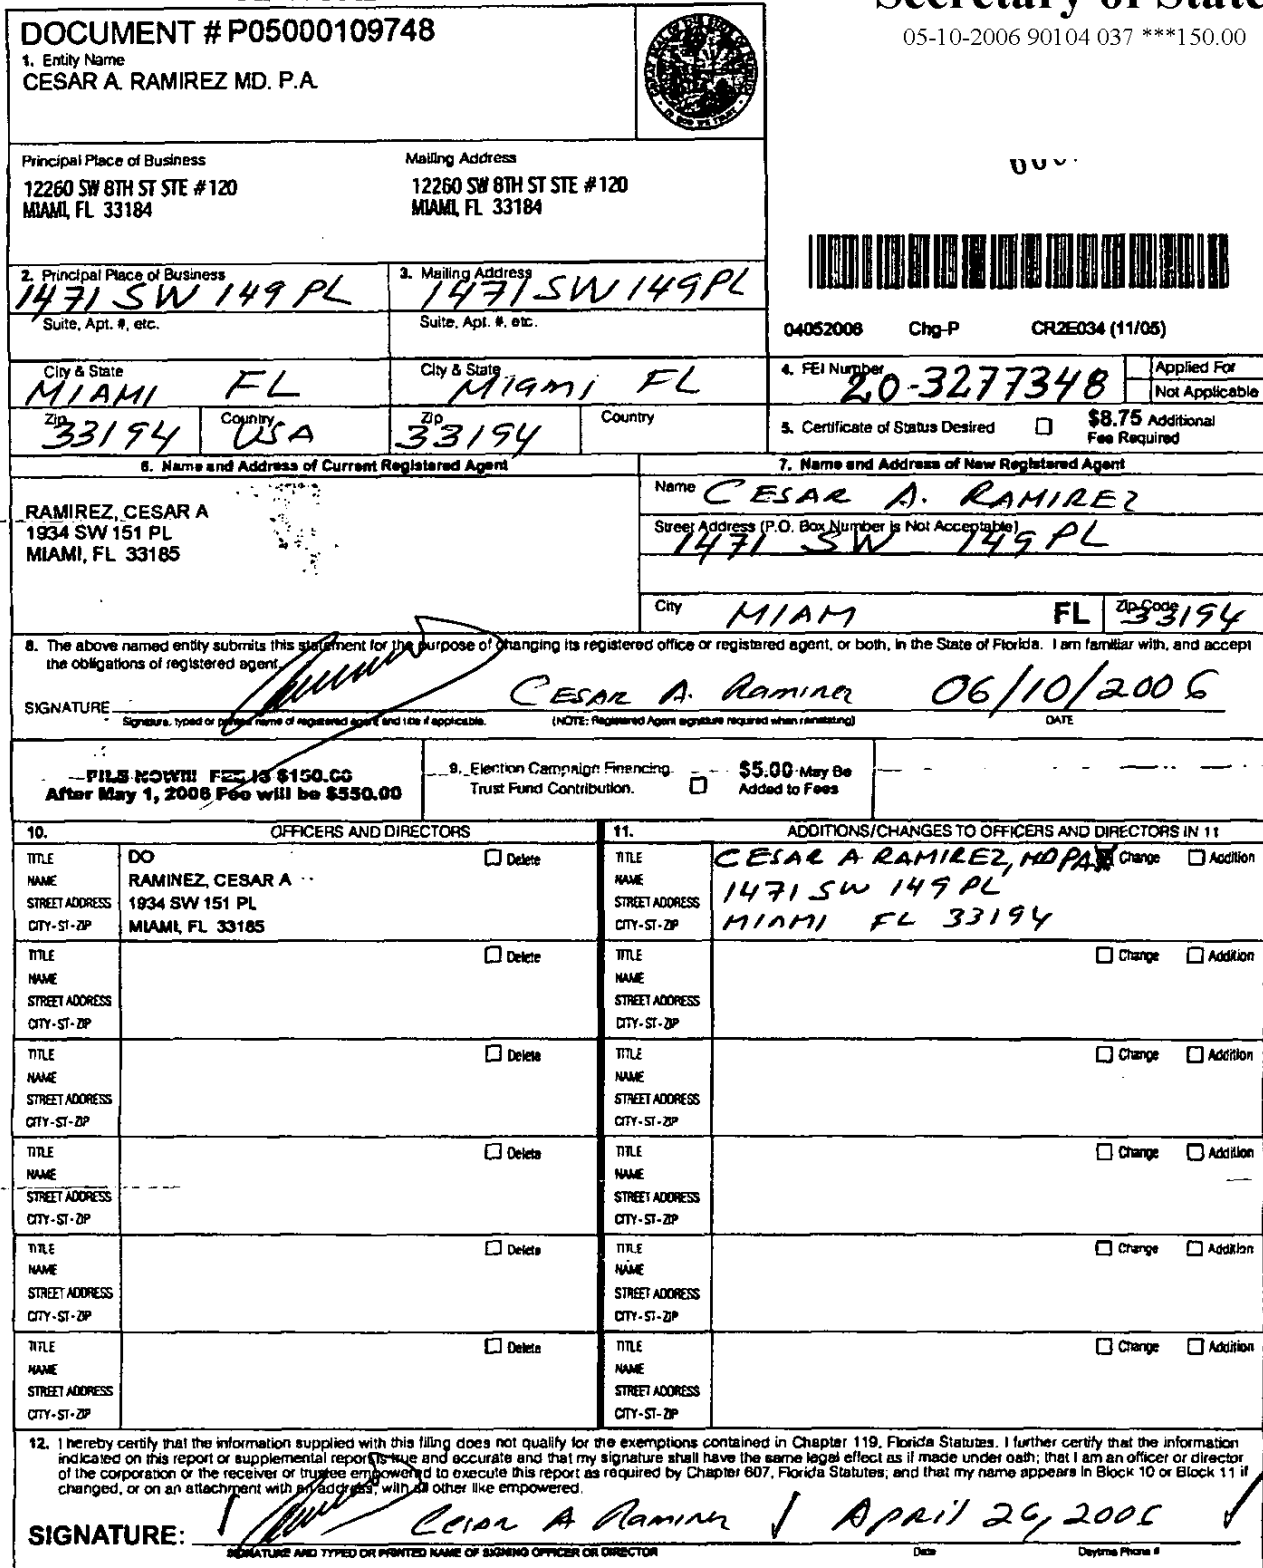 Secretary of State
05-10-2006 90104 037 ***150.00
DOCUMENT # P05000109748
1. Entity Name
CESAR A. RAMIREZ MD. P.A.
Principal Place of Business
12260 SW 8TH ST STE #120
MIAMI, FL 33184
Mailing Address
12260 SW 8TH ST STE #120
MIAMI, FL 33184
2. Principal Place of Business
1471 SW 149 PL
3. Mailing Address
1471 SW 149 PL
Suite, Apt. #, etc.
Suite, Apt. #, etc.
04052006 Chg-P CR2E034 (11/05)
City & State
MIAMI FL
City & State
Miami FL
4. FEI Number
20-3277348
Applied For
Not Applicable
Zip
33194
Country
USA
Zip
33194
Country
5. Certificate of Status Desired
$8.75 Additional
Fee Required
6. Name and Address of Current Registered Agent
RAMIREZ, CESAR A
1934 SW 151 PL
MIAMI, FL 33185
7. Name and Address of New Registered Agent
Name CESAR A. RAMIREZ
Street Address (P.O. Box Number is Not Acceptable)
1471 SW 149 PL
City MIAM FL Zip Code 33194
8. The above named entity submits this statement for the purpose of changing its registered office or registered agent, or both, in the State of Florida. I am familiar with, and accept
the obligations of registered agent.
SIGNATURE CESAR A. Ramirez 06/10/2006
Signature, typed or printed name of registered agent and title if applicable. (NOTE: Registered Agent signature required when reinstating) DATE
FILE NOW!!! FEE IS $150.00
After May 1, 2006 Fee will be $550.00
9. Election Campaign Financing
Trust Fund Contribution.
$5.00 May Be
Added to Fees
10. OFFICERS AND DIRECTORS
11. ADDITIONS/CHANGES TO OFFICERS AND DIRECTORS IN 11
TITLE DO Delete
NAME RAMINEZ, CESAR A
STREET ADDRESS 1934 SW 151 PL
CITY-ST-ZIP MIAMI, FL 33185
TITLE CESAR A RAMIREZ, MD PA X Change Addition
NAME 1471 SW 149 PL
STREET ADDRESS
CITY-ST-ZIP MIAMI FL 33194
TITLE Delete
NAME
STREET ADDRESS
CITY-ST-ZIP
TITLE Change Addition
NAME
STREET ADDRESS
CITY-ST-ZIP
TITLE Delete
NAME
STREET ADDRESS
CITY-ST-ZIP
TITLE Change Addition
NAME
STREET ADDRESS
CITY-ST-ZIP
TITLE Delete
NAME
STREET ADDRESS
CITY-ST-ZIP
TITLE Change Addition
NAME
STREET ADDRESS
CITY-ST-ZIP
TITLE Delete
NAME
STREET ADDRESS
CITY-ST-ZIP
TITLE Change Addition
NAME
STREET ADDRESS
CITY-ST-ZIP
TITLE Delete
NAME
STREET ADDRESS
CITY-ST-ZIP
TITLE Change Addition
NAME
STREET ADDRESS
CITY-ST-ZIP
12. I hereby certify that the information supplied with this filing does not qualify for the exemptions contained in Chapter 119, Florida Statutes. I further certify that the information
indicated on this report or supplemental report is true and accurate and that my signature shall have the same legal effect as if made under oath; that I am an officer or director
of the corporation or the receiver or trustee empowered to execute this report as required by Chapter 607, Florida Statutes; and that my name appears in Block 10 or Block 11 if
changed, or on an attachment with an address, with all other like empowered.
SIGNATURE: Cesar A Ramirez April 26, 2006
SIGNATURE AND TYPED OR PRINTED NAME OF SIGNING OFFICER OR DIRECTOR Date Daytime Phone #